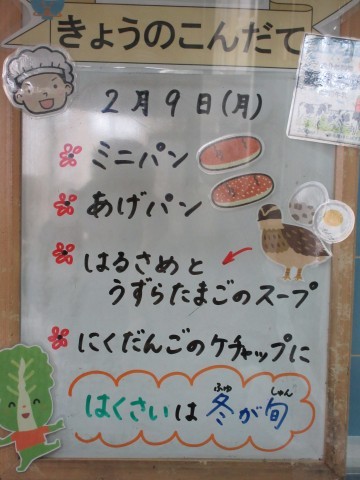 きょうのこんだて
2月9日(月)
ミニパン
あげパン
はるさめと
うずらたまごのスープ
にくだんごのケチャップに
はくさいは冬が旬
ふゆ しゅん